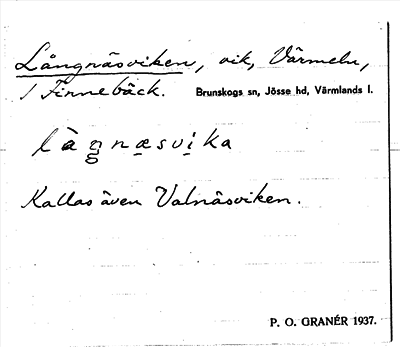 Långnäsviken, vik, Värmeln,
/ Finnebäck. Brunskogs sn, Jösse hd, Värmlands l.
làgnæsvika
Kallas även Valnäsviken.
P. O. GRANÉR 1937.